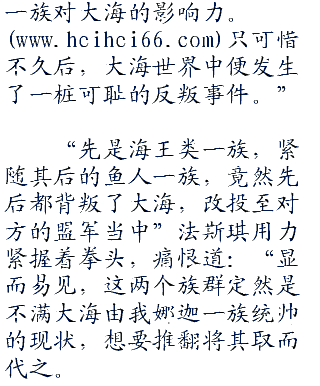 一族对大海的影响力。
(www.hcihci66.com)只可惜
不久后，大海世界中便发生
了一桩可耻的反叛事件。”
“先是海王类一族，紧
随其后的鱼人一族，竟然先
后都背叛了大海，改投至对
方的盟军当中”法斯琪用力
紧握着拳头，痛恨道：“显
而易见，这两个族群定然是
不满大海由我娜迦一族统帅
的现状，想要推翻将其取而
代之。